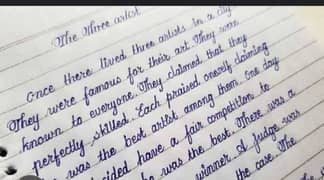 The three artist
Once there lived three artists in a city
They were famous for their art. They were
known to everyone. They claimed that they
perfectly skilled. Each praised onerly claiming
was the best artist among them. One day
cided have a fair competition to
was the best. There was a
winner. A judge was
the case. The